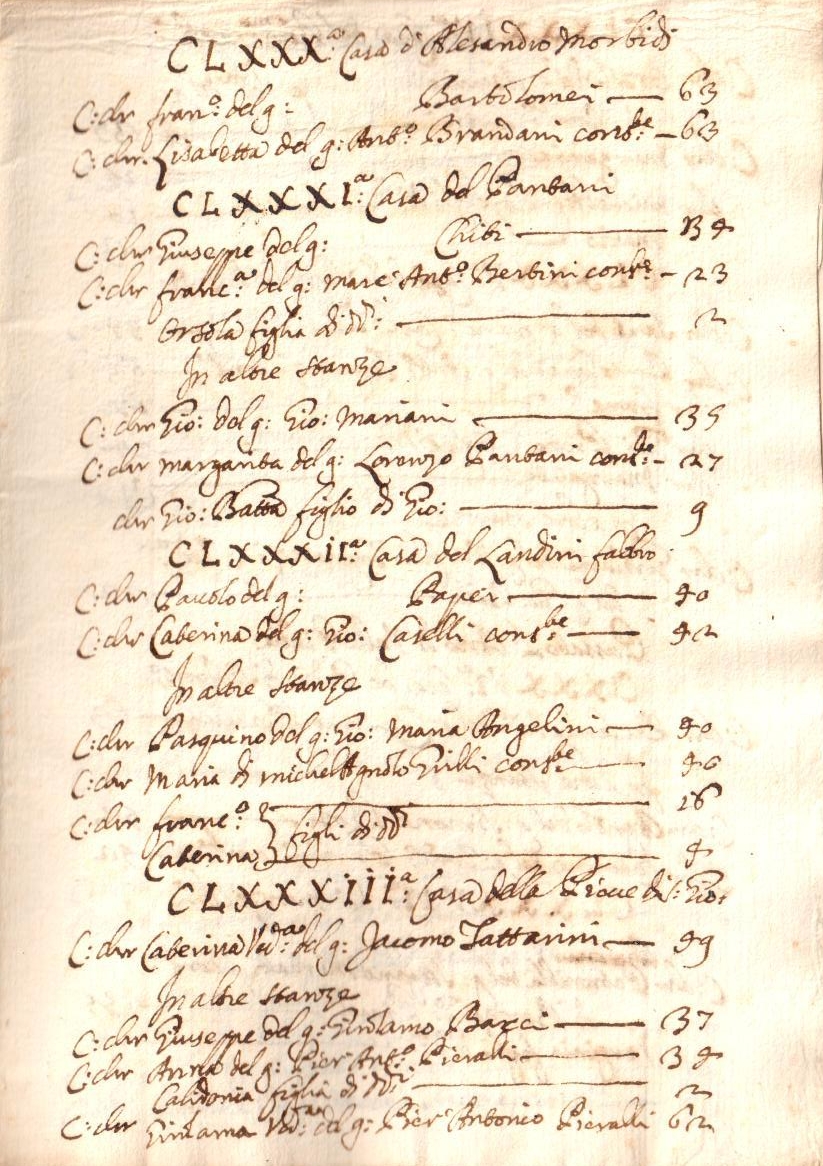 CLXXX.ª Casa d'Alesandro Morbidi
C: chr fran.º del g: Bartolomei — 63
C: chr. Lisabetta del g: Ant.º Brandani cons.te — 63
CLXXXI.ª Casa del Pantani
C: chr Giuseppe del g: Chiti — 34
C: chr franc.ª del g: Marc' Ant.º Bertini cons.e — 23
Orsola figlia di dd.i — 2
In altre stanze
C: chr Gio: del g: Gio: Mariani — 35
C: chr Margarita del g: Lorenzo Pantani cons.te — 27
chr Gio: Batta figlio di Gio: — 9
CLXXXII.ª Casa del Landini fabbro
C: chr Pauolo del g: Paper — 40
C: chr Caterina del g: Gio: Caselli cons.te — 42
In altre stanze
C: chr Pasquino del g: Gio: Maria Angelini — 40
C: chr Maria di Michel Agnolo Grilli cons.te — 46
C: chr franc.º } figli di dd.i — 16
Caterina — 4
CLXXXIII.ª Casa della Pieve di S: Gio:
C: chr Caterina Ved.ª del g: Jacomo Tattarini — 49
In altre stanze
C: chr Giuseppe del g: Girolamo Bacci — 37
C: chr Anna del g: Pier Ant.º Pieralli — 34
Calidonia figlia di dd.i — 2
C: chr Ved.ª del g: Pier Antonio Pieralli 62